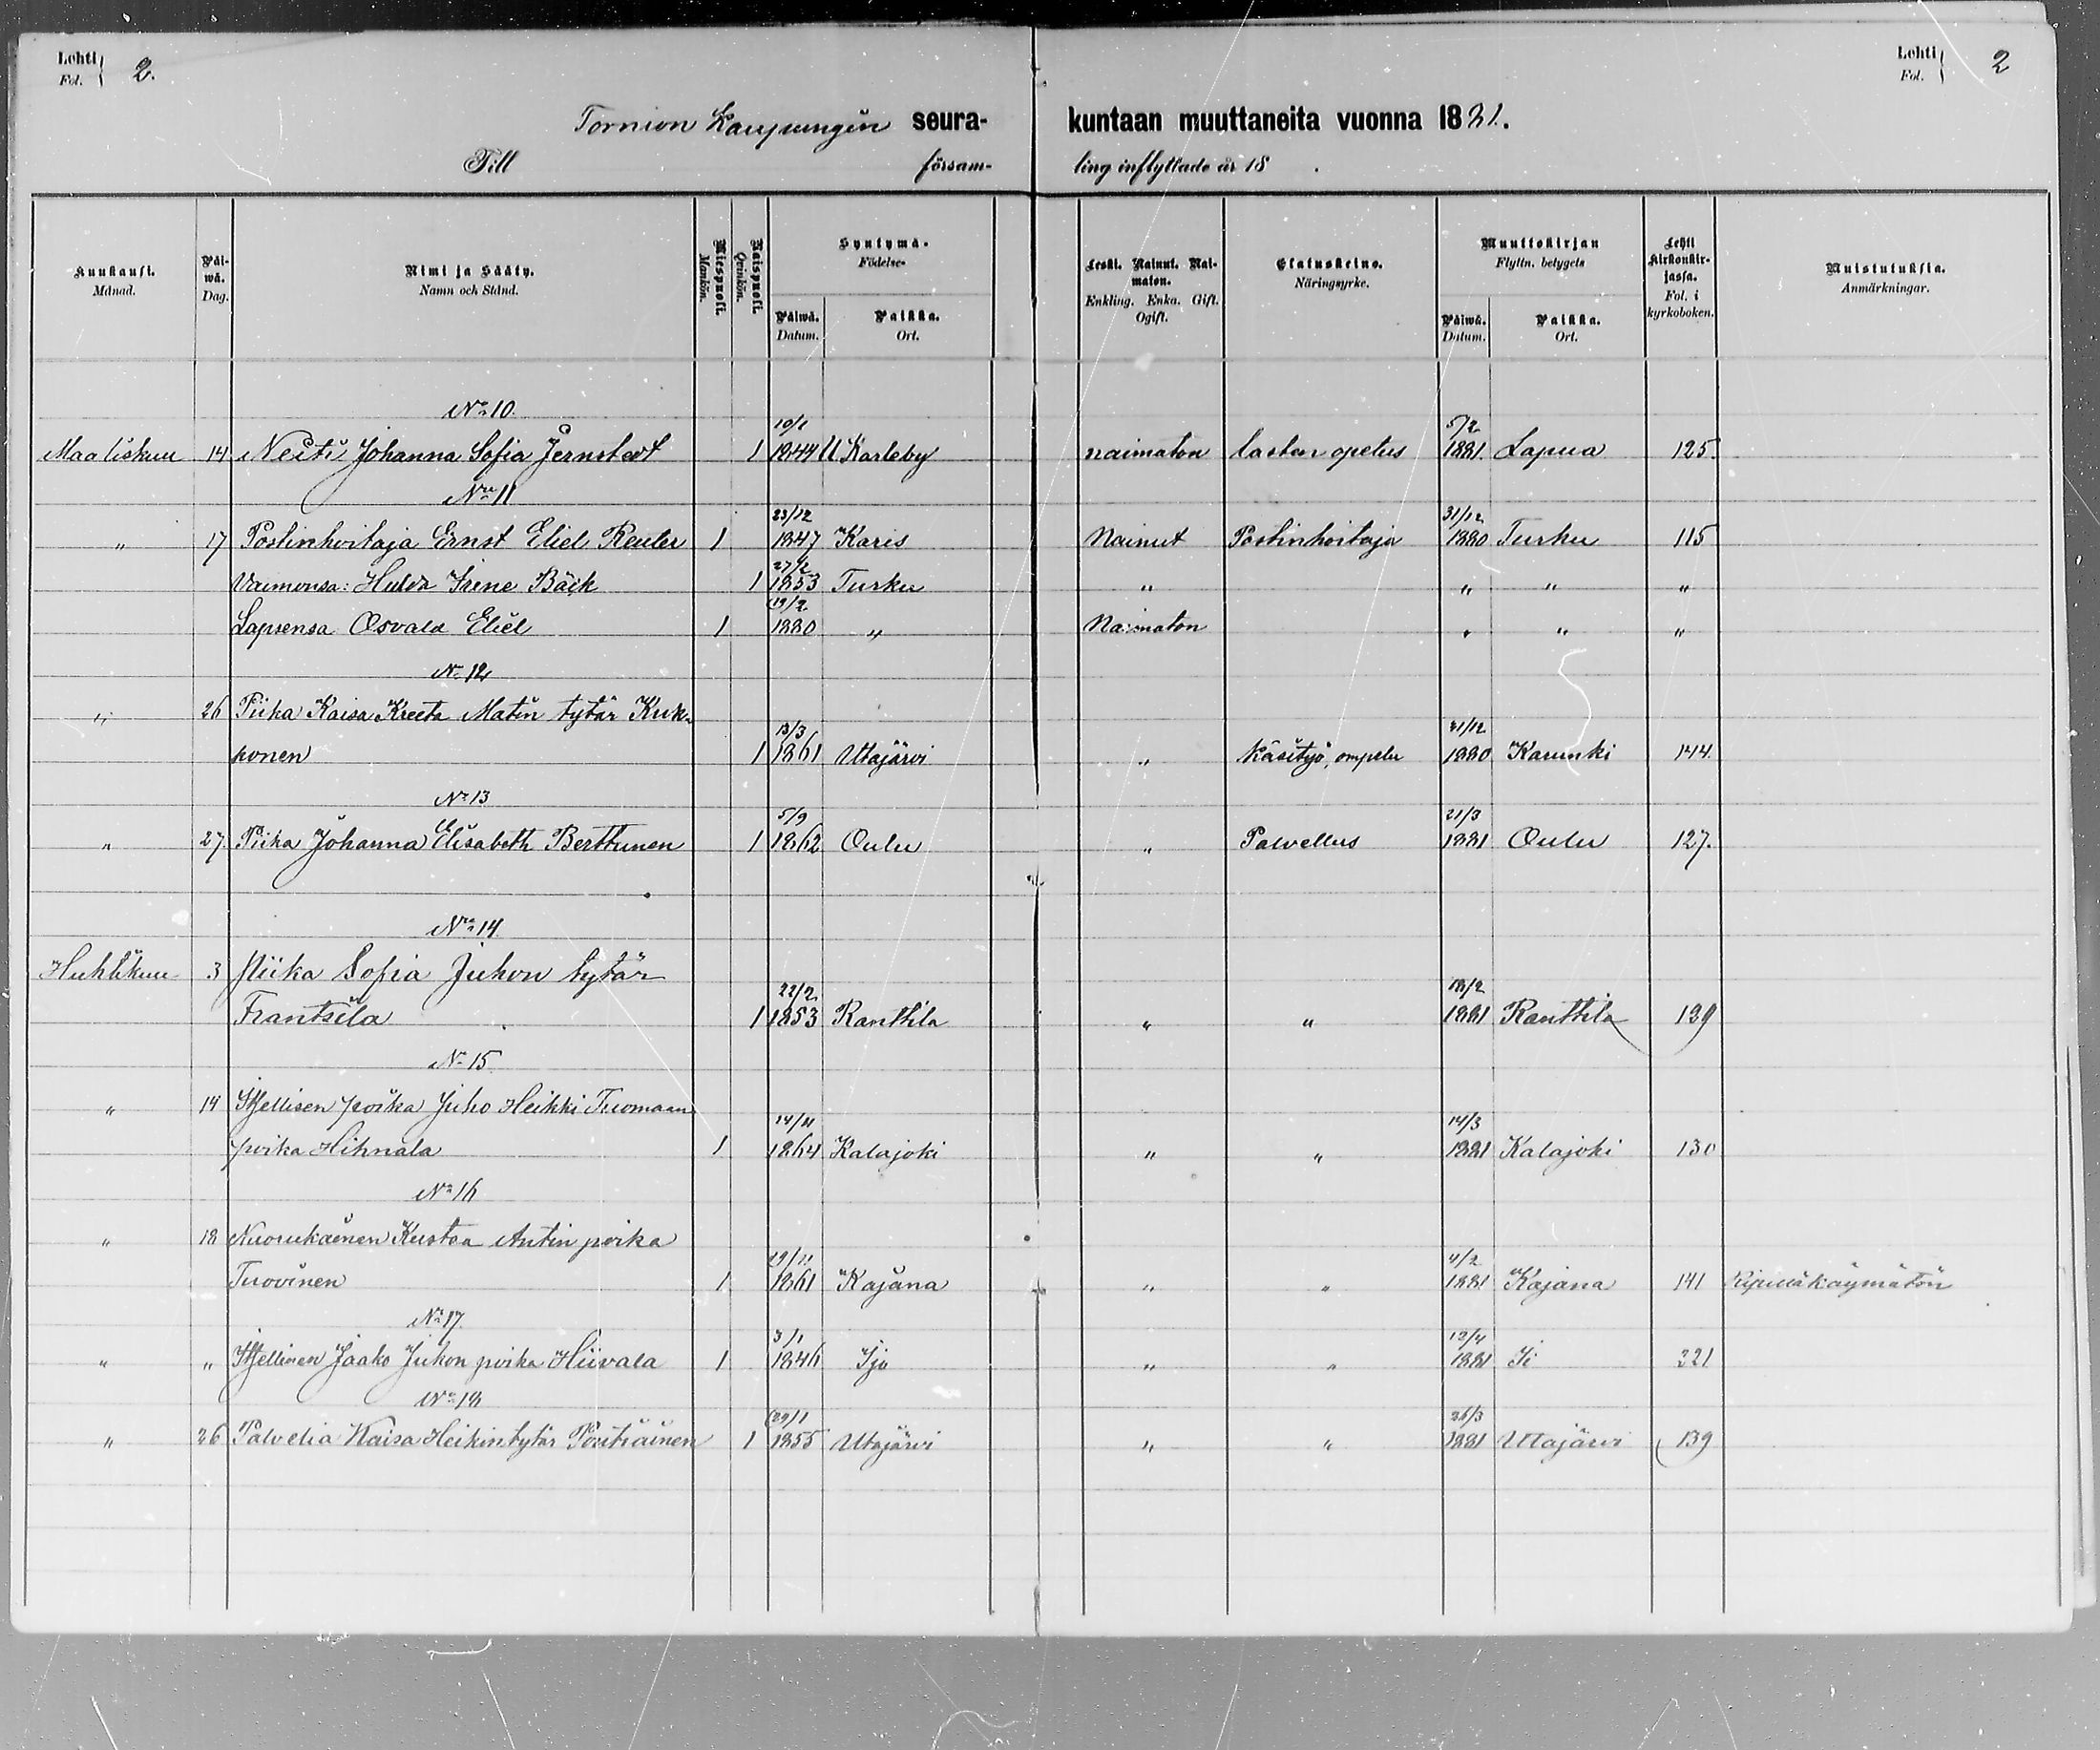 Lehti Fol. 2. Lehti Fol. 2
Tornion Kaupungin seura- kuntaan muuttaneita vuonna 1881.
Till församling inflyttade år 18 .
Kuukausi. Månad. Päiwä. Dag. Nimi ja Sääty. Namn och Stånd. Miespuoli. Mankön. Naispuoli. Qvinkön. Syntymä- Födelse- Päiwä. Datum. Paikka. Ort. Leski. Nainut. Naimaton. Enkling. Enka. Gift. Ogift. Elatuskeino. Näringsyrke. Muuttokirjan Flyttn. betygets Päiwä. Datum. Paikka. Ort. Lehti kirkonkirjassa. Fol. i kyrkoboken. Muistutuksia. Anmärkningar.
No 10.
19/1 5/2
Maaliskuu 14 Neiti Johanna Sofia Jernstedt 1 1844 U Karleby naimaton lasten opetus 1881 Lapua 125.
Nro 11
23/12 31/12
" 17 Postinhoitaja Ernst Eliel Reuler 1 1847 Karis Nainut Postinhoitaja 1880 Turku 115
27/2
Vaimonsa: Hulda Irene Bäck 1 1853 Turku " " " "
19/2
Lapsensa Osvald Eliel 1 1880 " Naimaton " " "
No 12
" 26 Piika Kaisa Kreeta Matin tytär Kuk-
13/3 31/12
konen 1 1861 Utajärvi " Käsityö, ompelu 1880 Karunki 144.
No 13
5/9 21/3
" 27. Piika Johanna Elisabeth Berttunen 1 1862 Oulu " Palvellus 1881 Oulu 127.
Nro 14.
Huhtikuu 3 Piika Sofia Juhon tytär
22/2 18/2
Frantsila 1 1853 Ranttila " " 1881 Ranttila 129
No 15
" 14 Itsellisen poika Juho Heikki Tuomaan
14/11 14/3
poika Hihnala 1 1864 Kalajoki " " 1881 Kalajoki 130
No 16
" 18 Nuorukainen Kustaa Antin poika
29/11 4/2
Tuovinen 1 1861 Kajana " " 1881 Kajana 141 Ripillä käymätön
No 17.
3/1 12/4
" " Itsellinen Jaako Juhon poika Hiivala 1 1846 Ijo " " 1881 Ii 221
No 18
29/1 26/3
" 26 Palvelia Kaisa Heikin tytär Pöntiäinen 1 1855 Utajärvi " " 1881 Utajärvi 139